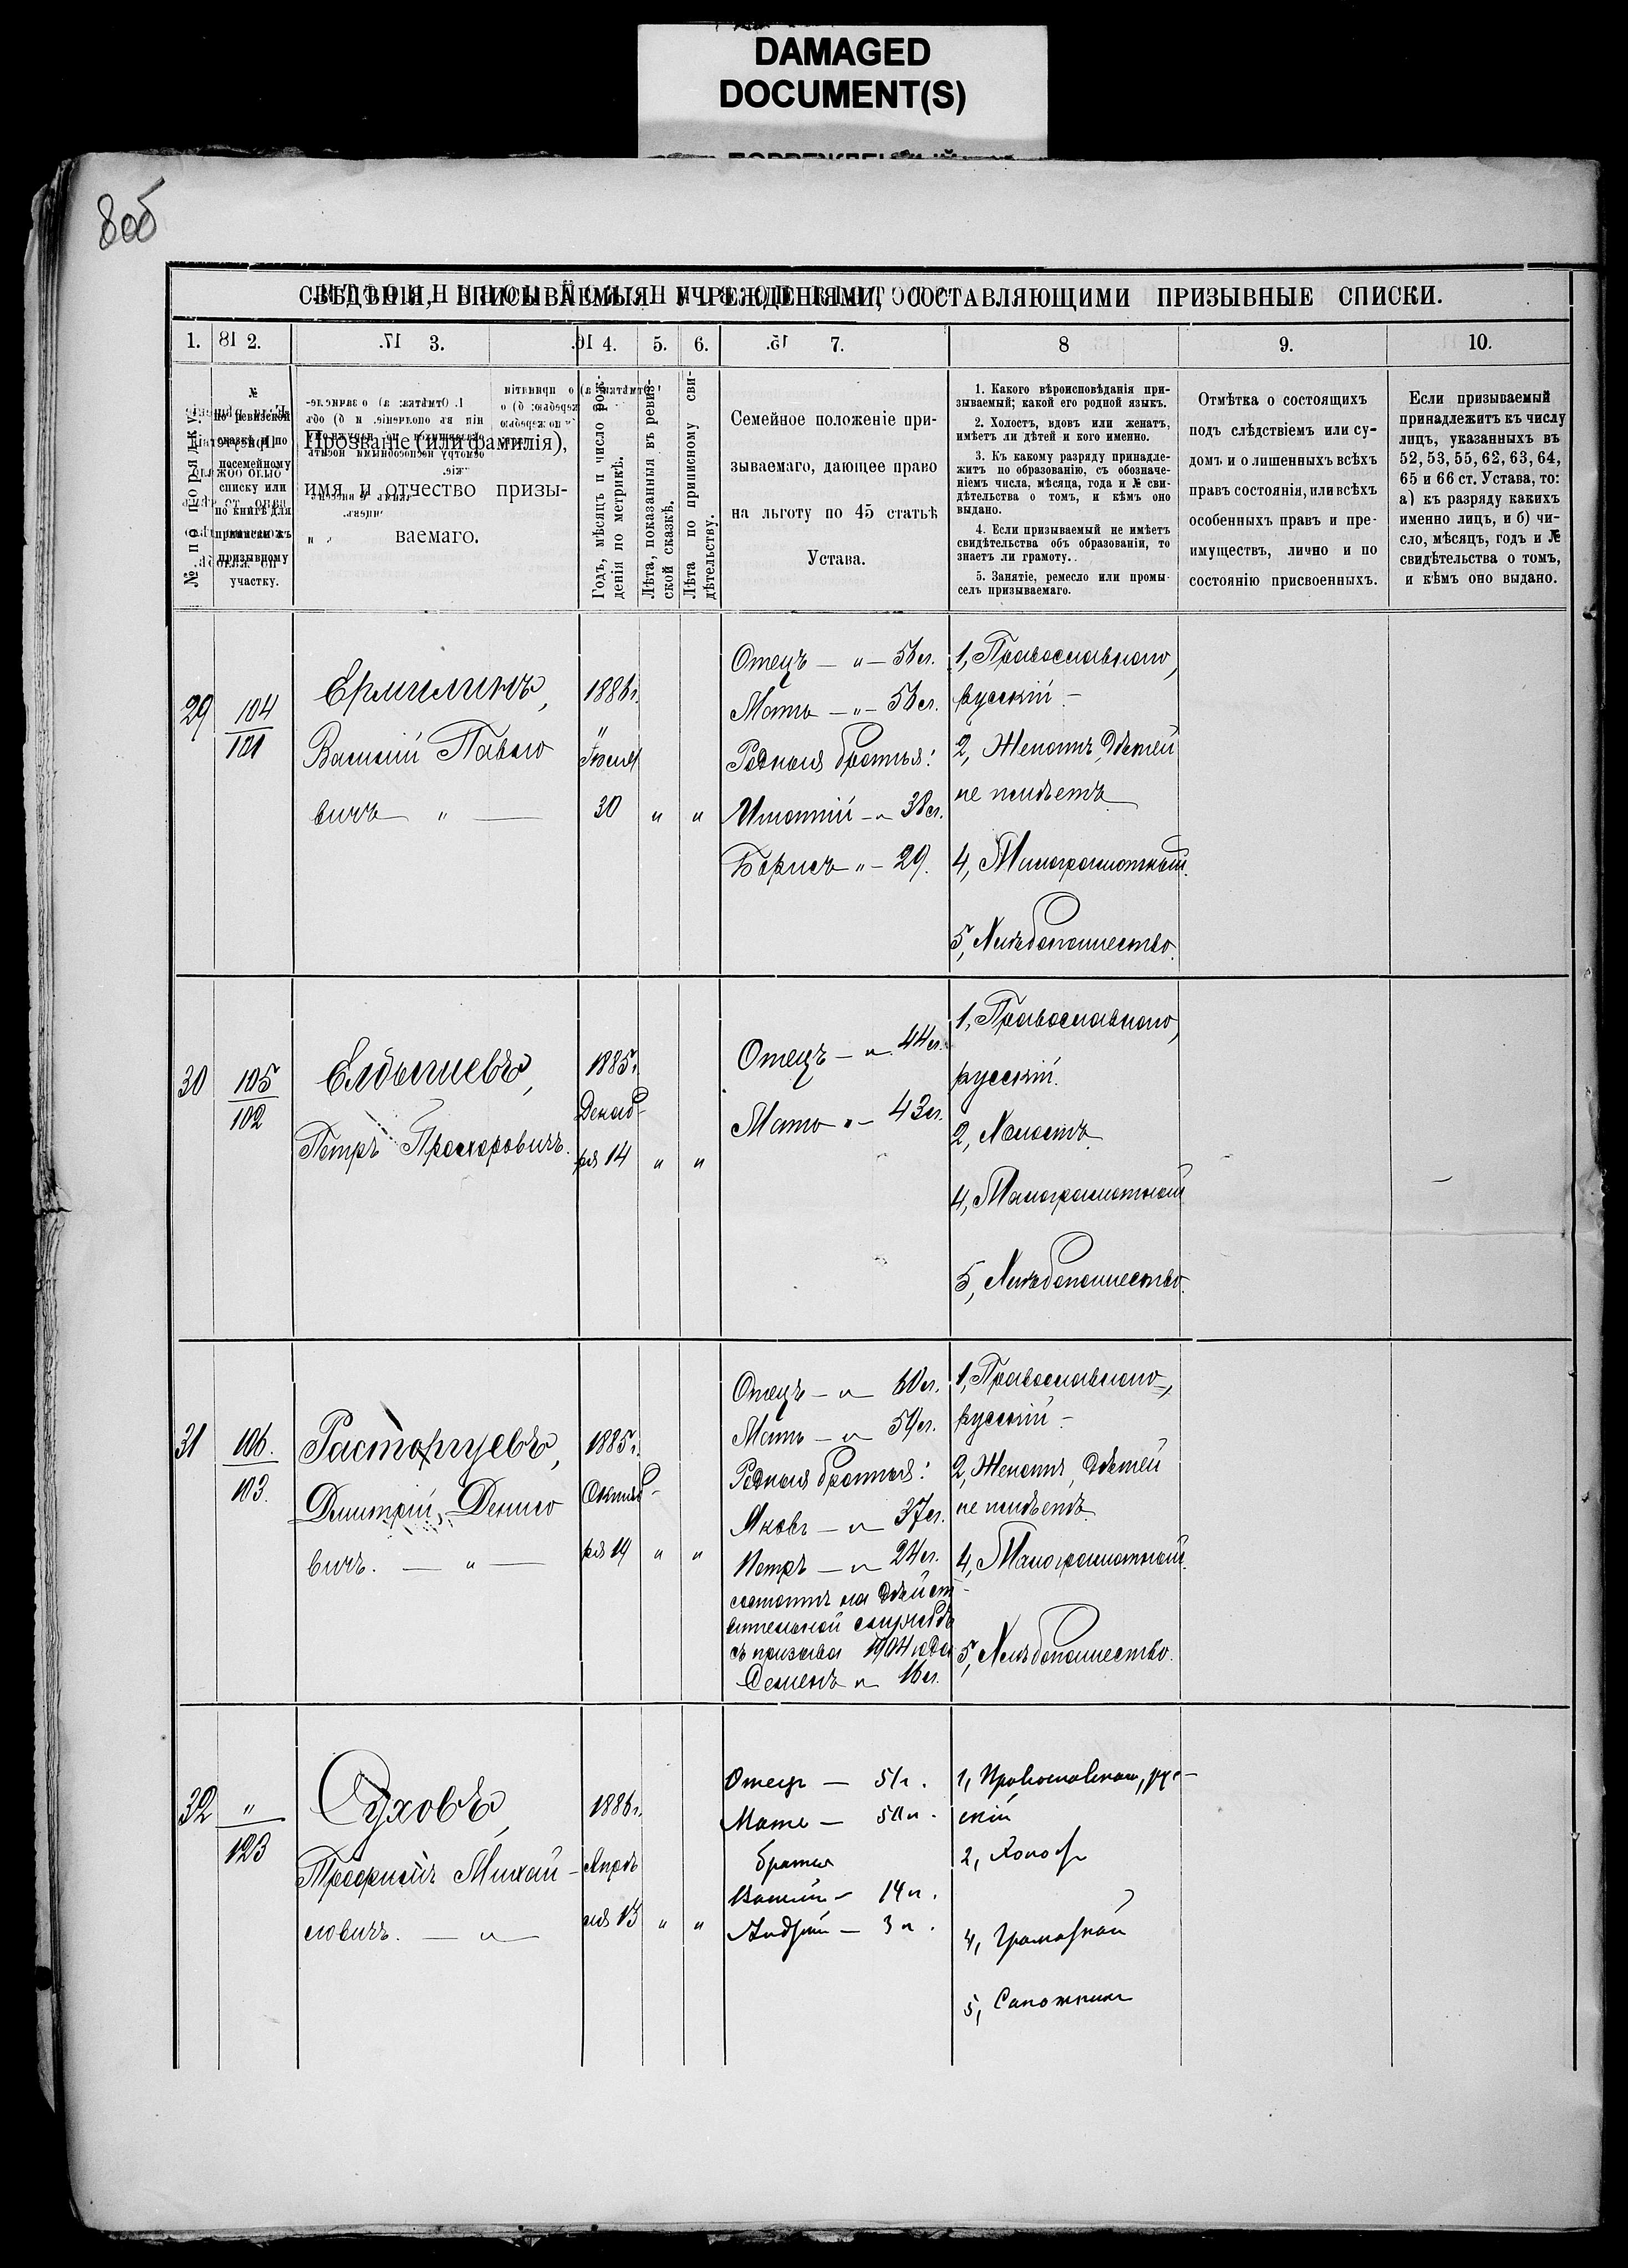 DAMAGED
DOCUMENT(S)
8об
СВѢДѢНІЯ, ВПИСЫВАЕМЫЯ УЧРЕЖДЕНІЯМИ, СОСТАВЛЯЮЩИМИ ПРИЗЫВНЫЕ СПИСКИ.
1. 2. 3. 4. 5. 6. 7. 8 9. 10.
№ по порядку.
№
по ревизской
сказкѣ и по
посемейному
списку или
по книгѣ для
приписки къ
призывному
участку.
Прозваніе (или фамилія),
имя и отчество призы-
ваемаго.
Годъ, мѣсяцъ и число рож-
денія по метрикѣ.
Лѣта, показанныя въ ревиз-
ской сказкѣ.
Лѣта по приписному сви-
дѣтельству.
Семейное положеніе при-
зываемаго, дающее право
на льготу по 45 статьѣ
Устава.
1. Какого вѣроисповѣданія при-
зываемый; какой его родной языкъ.
2. Холостъ, вдовъ или женатъ,
имѣетъ ли дѣтей и кого именно.
3. Къ какому разряду принадле-
житъ по образованію, съ обозначе-
ніемъ числа, мѣсяца, года и № сви-
дѣтельства о томъ, и кѣмъ оно
выдано.
4. Если призываемый не имѣетъ
свидѣтельства объ образованіи, то
знаетъ ли грамоту.
5. Занятіе, ремесло или промы-
селъ призываемаго.
Отмѣтка о состоящихъ
подъ слѣдствіемъ или су-
домъ и о лишенныхъ всѣхъ
правъ состоянія, или всѣхъ
особенныхъ правъ и пре-
имуществъ, лично и по
состоянію присвоенныхъ.
Если призываемый
принадлежитъ къ числу
лицъ, указанныхъ въ
52, 53, 55, 62, 63, 64,
65 и 66 ст. Устава, то:
а) къ разряду какихъ
именно лицъ, и б) чи-
сло, мѣсяцъ, годъ и №
свидѣтельства о томъ,
и кѣмъ оно выдано.
29
104
101
Ермилинъ,
Василій Павло
вичъ "
1886г.
"
30 " "
Отецъ — " — 56л.
Мать — " — 56л.
Родныя братья:
38л.
Борисъ " — 29.
1, Православнаго,
русскій —
2, Женатъ, дѣтей
не имѣетъ
4, Малограмотный.
5, Хлѣбопашество.
30
105
102
Елдышевъ,
Петръ Прохоровичъ.
1885г.
Декаб-
ря 14 " "
Отецъ — " 44л.
Мать " — 43л.
1, Православнаго,
русскій.
2, Холостъ
4, Малограмотный
5, Хлѣбопашество.
31
106.
103.
Расторгуевъ,
Дмитрій Денисо
вичъ. — " —
1885г.
Октяб-
ря 14 " "
Отецъ — " — 60л.
Мать — "
Родныя братья:
Яковъ — " — 37л.
Петръ — " — 24л.
состоитъ на дѣйст-
вительной службѣ
съ призыва 1904 года
Семенъ " 16л.
1, Православнаго,
русскій —
2, Женатъ, дѣтей
не имѣетъ.
4, Малограмотный.
5, Хлѣбопашество.
32
"
123
Суховъ,
Михай-
ловичъ. — "
1886г.
Апрѣ
ля 13 " "
Отецъ — 51г.
Мать — 50л.
братья
Василій — 14л.
Андрей — 3л.
1, Православнаго, рус-
скій
2, Холост
4, Грамотный
5, Сапожник